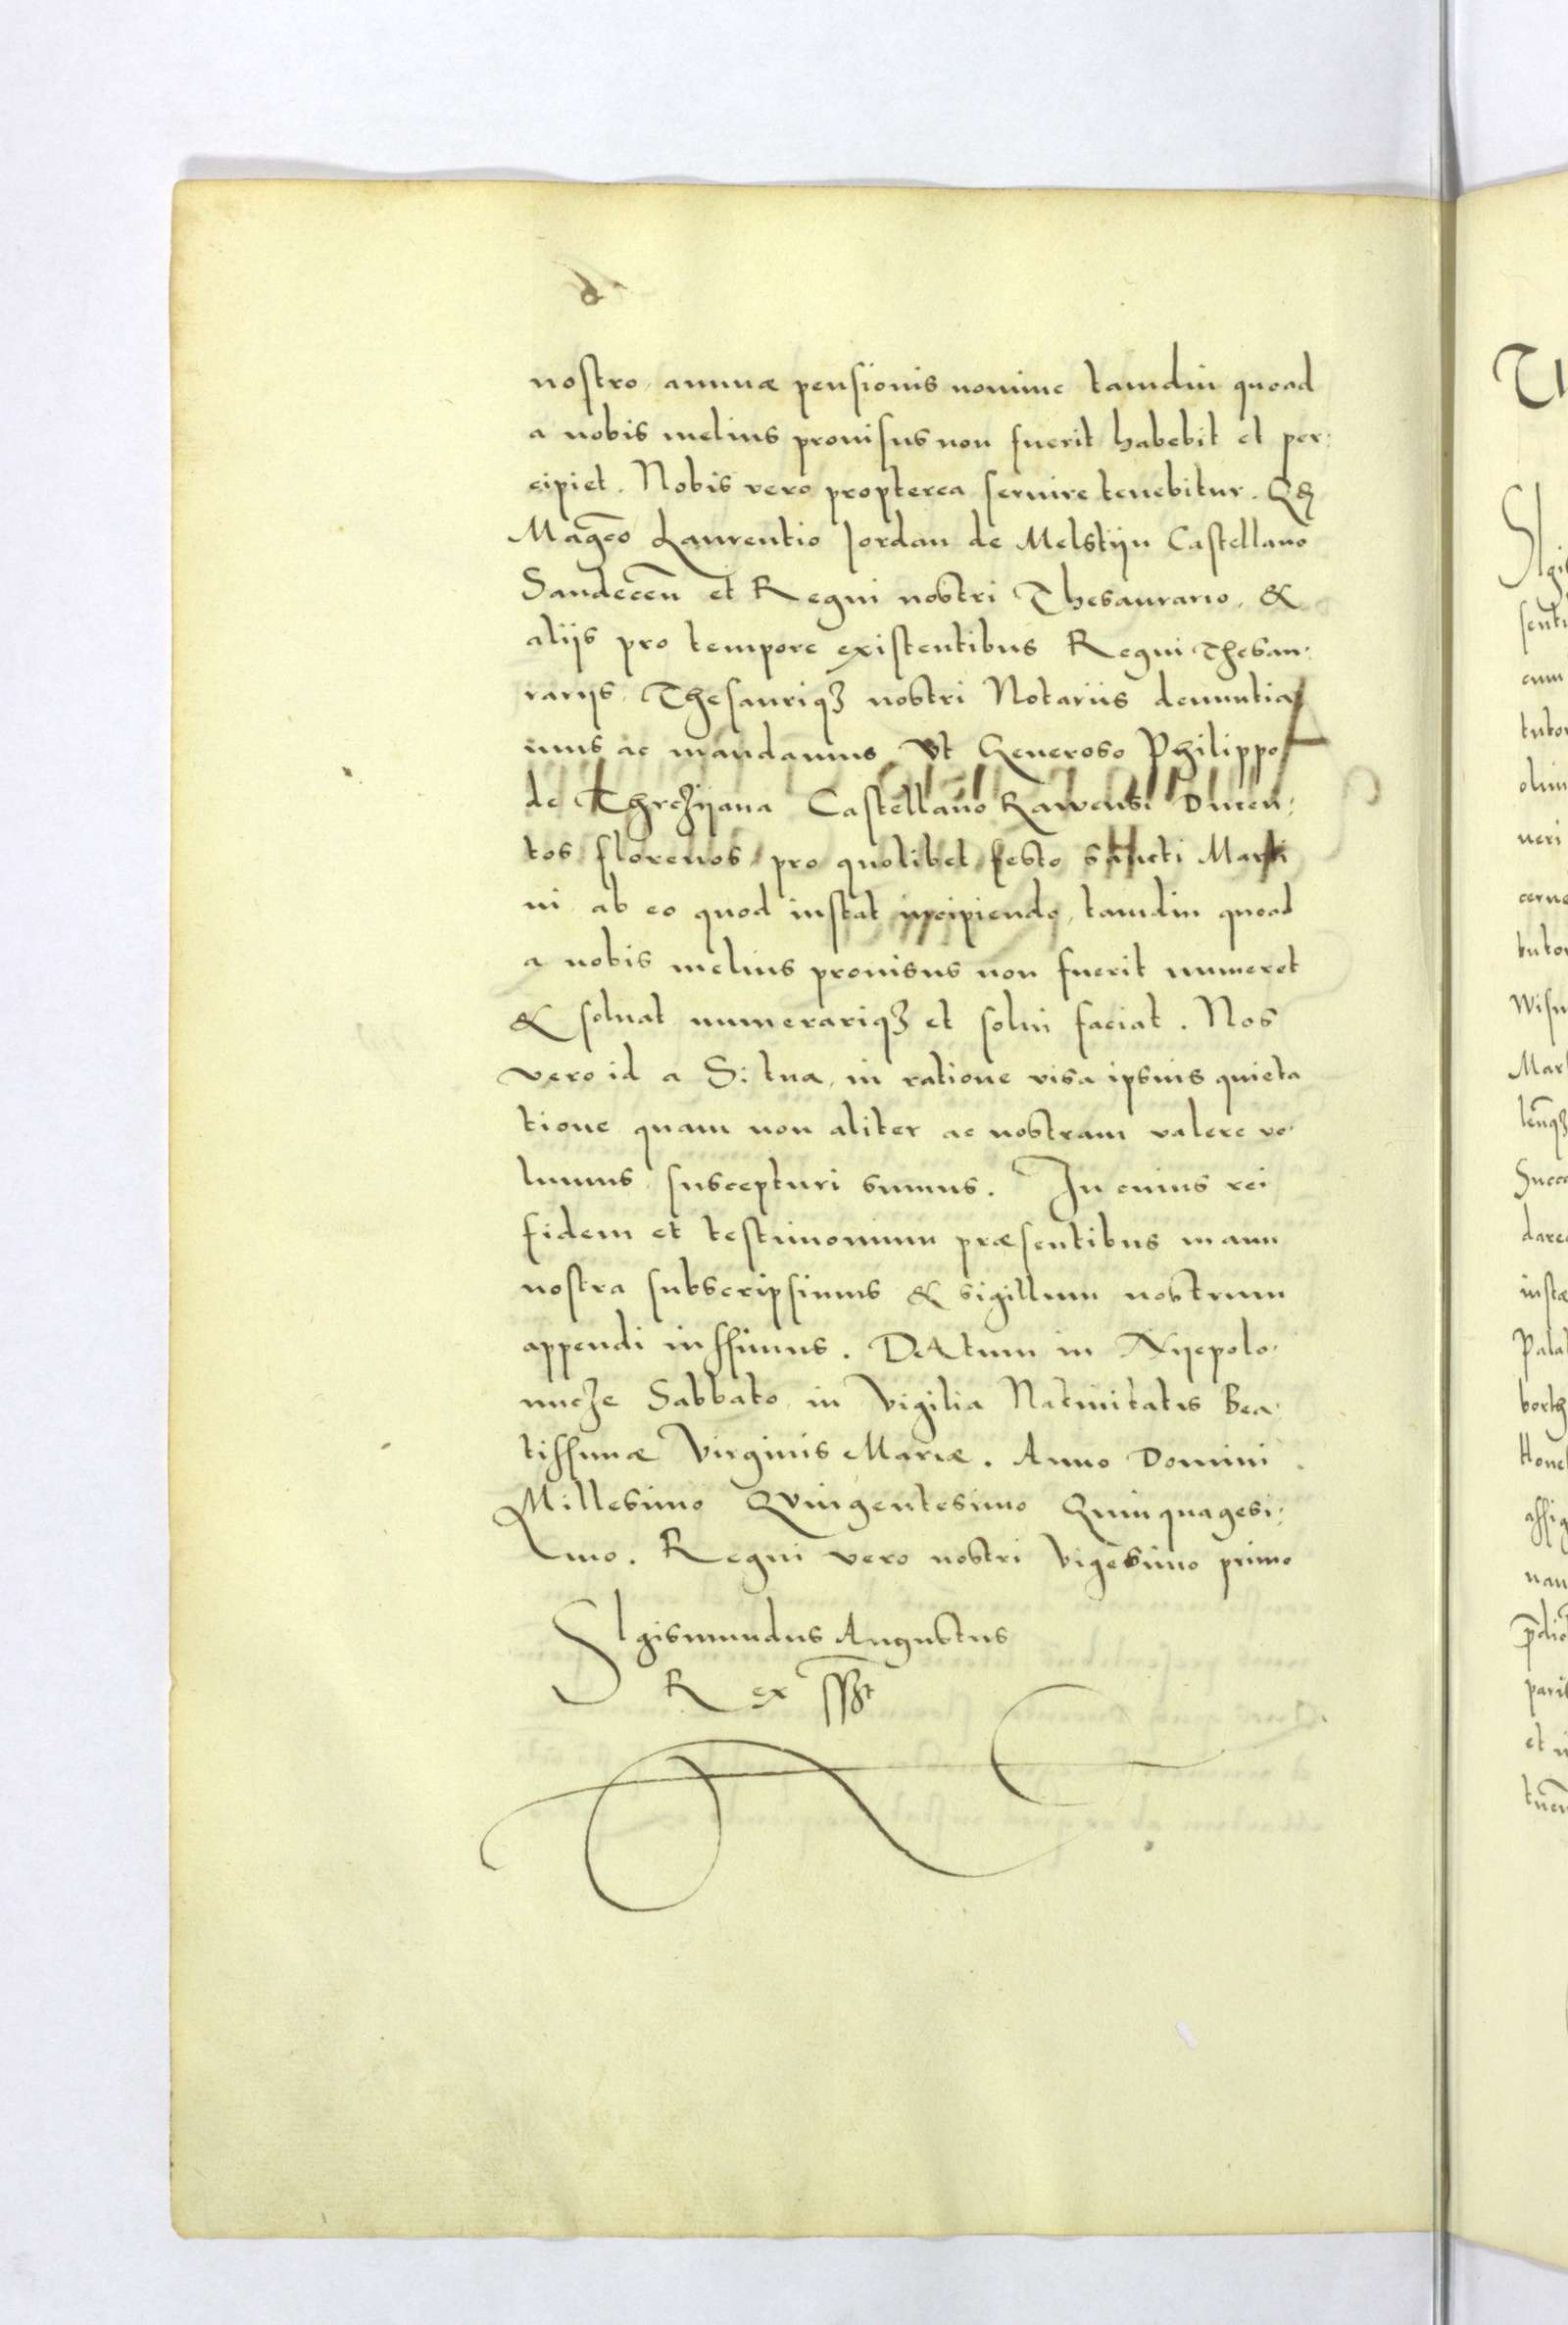 nostro, annuæ pensionis nomine tamdiu quoad
a nobis melius prouisus non fuerit habebit et per:
cipiet. Nobis vero propterea seruire tenebitur.
Magco Laurentio Jordan de Melstijn Castellano
Sandecen et Regni nostri Thesaurario, &
alijs pro tempore existentibus Regni Thesau:
rarijs, Thesauriqꝫ nostri Notariis denuntia
mus ac mandamus, Vt Generoso Philippo
de Threzijana Castellano Rawensi Ducen:
tos florenos pro quolibet festo sancti Marti
ni ab eo quod instat incipiendo, tamdiu quoad
a nobis melius prouisus non fuerit numeret
& soluat numerariqꝫ et solui faciat. Nos
vero id a S: tua, in ratione visa ipsius quieta
tione quam non aliter ac nostram valere vo:
lumus suscepturi sumus. In cuius rei
fidem et testimonium præsentibus manu
nostra subscripsimus & sigillum nostrum
appendi iussimus. DAtum in Nyepolo:
mcze Sabbato in Vigilia Natiuitatis Bea:
tissimæ Virginis Mariæ. Anno Domini
Millesimo Quingentesimo Quinquagesi:
mo. Regni vero nostri Vigesimo primo
SIgismundus Augustus
Rex sst
SIgi
senti
cum
tutor
olim
neri
cerne
butor
Wisn
Mar
lenqꝫ
Succ
dare
insta
Pala
borth
Hone
assig
nan
pdic
parit
et